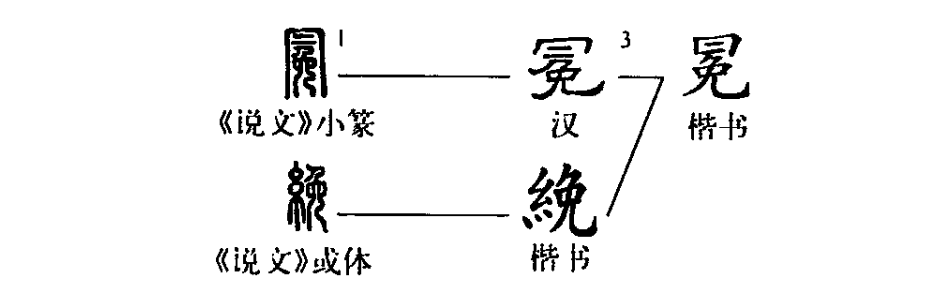 冕 1 冕 3 冕
《说文》小篆 汉 楷书
絻 絻
《说文》或体 楷书